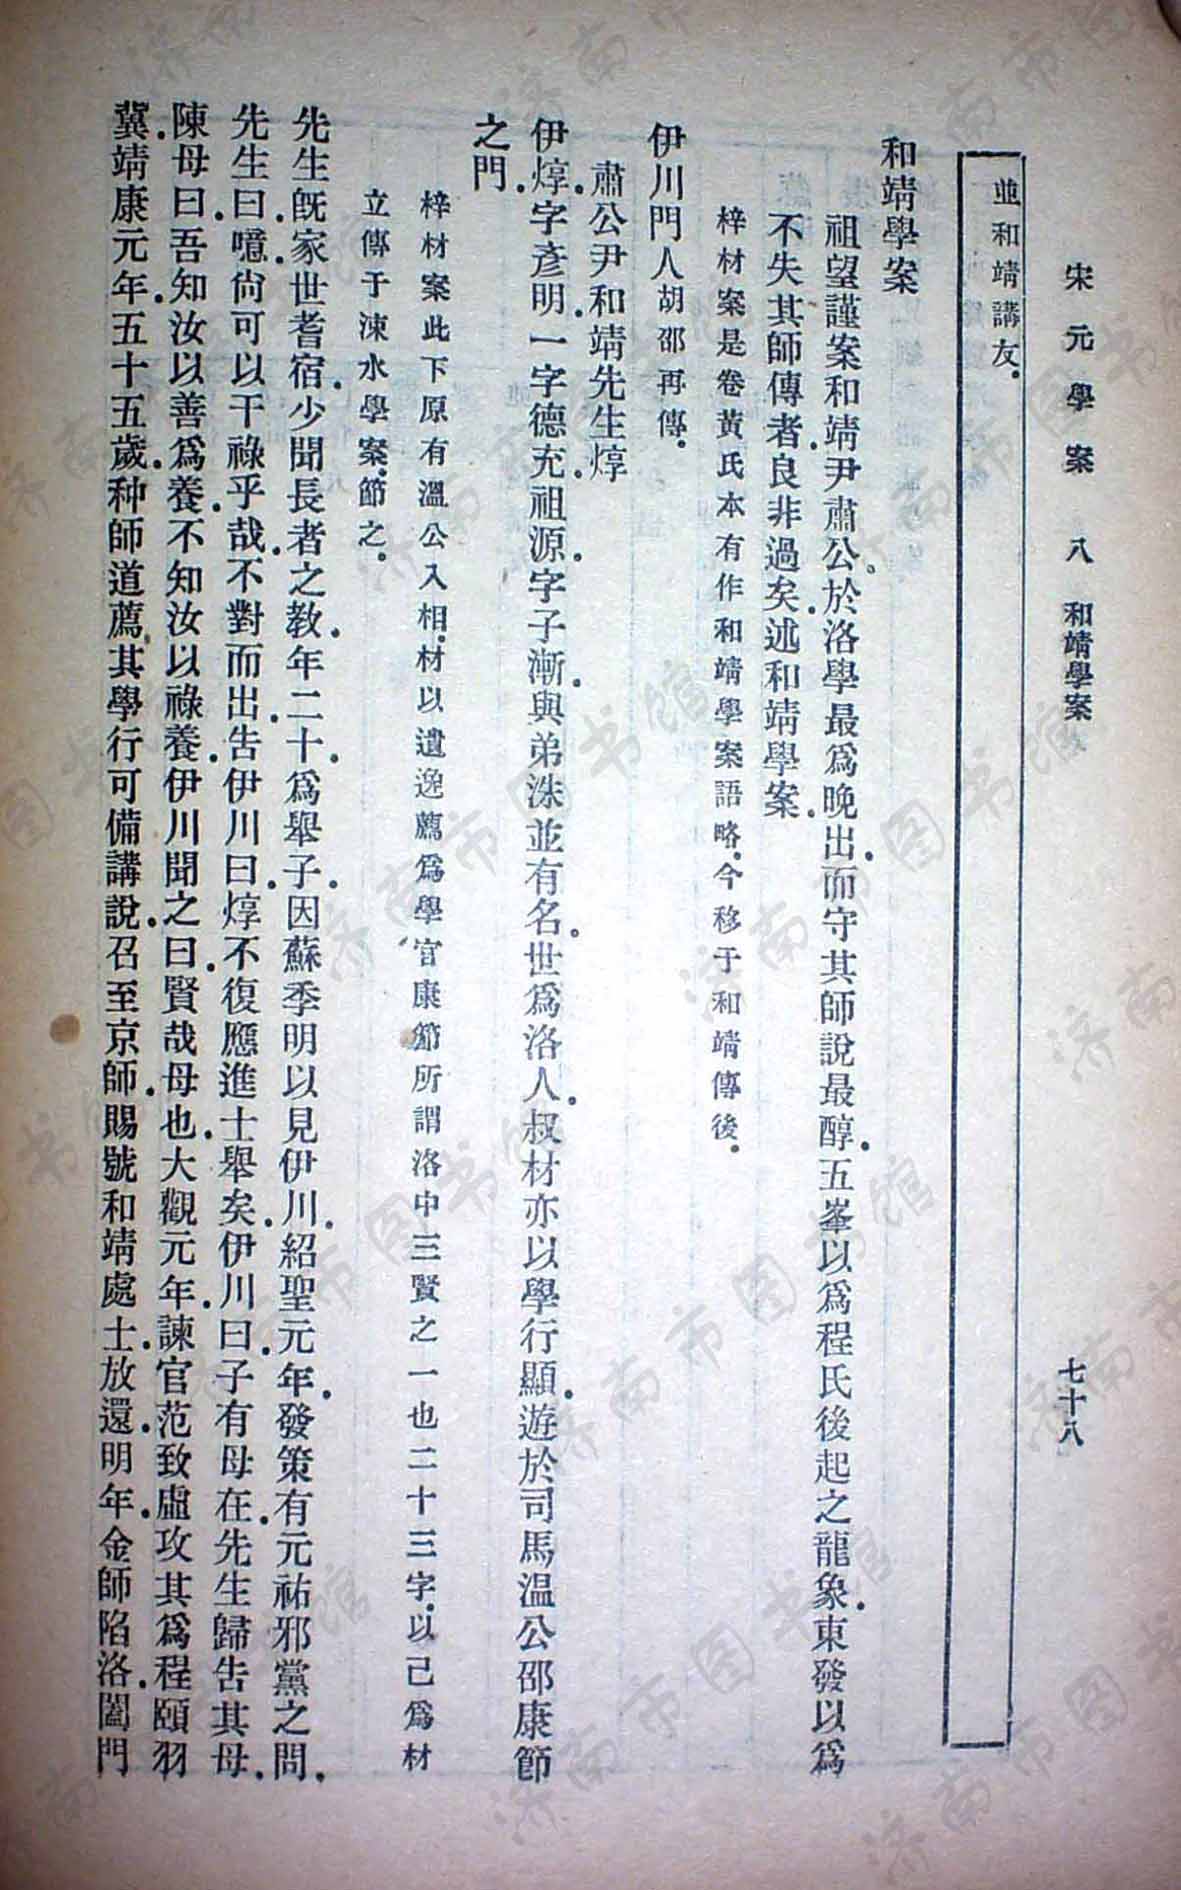 宋元學案 八 和靖學案 七十八
並和靖講友.
和靖學案
祖望謹案和靖尹肅公於洛學最爲晚出.而守其師說最醇.五峯以爲程氏後起之龍象.東發以爲
不失其師傳者.良非過矣.述和靖學案.
梓材案是卷黃氏本有作和靖學案語略.今移于和靖傳後.
伊川門人胡邵再傳.
肅公尹和靖先生焞
伊焞.字彥明.一字德充.祖源.字子漸.與弟洙並有名.世爲洛人.叔材亦以學行顯.遊於司馬溫公邵康節
之門.
梓材案此下原有溫公入相.材以遺逸薦爲學官康節所謂洛中三賢之一也二十三字.以已爲材
立傳于涑水學案.節之.
先生旣家世耆宿.少聞長者之教.年二十.爲舉子.因蘇季明以見伊川.紹聖元年.發策有元祐邪黨之問.
先生曰.噫.尙可以干祿乎哉.不對而出.吿伊川曰.焞不復應進士舉矣.伊川曰.子有母在.先生歸吿其母.
陳母曰.吾知汝以善爲養.不知汝以祿養.伊川聞之曰.賢哉母也.大觀元年.諫官范致虛攻其爲程頤羽
冀.靖康元年.五十五歲.种師道薦其學行可備講說.召至京師.賜號和靖處士.放還.明年.金師陷洛.闔門